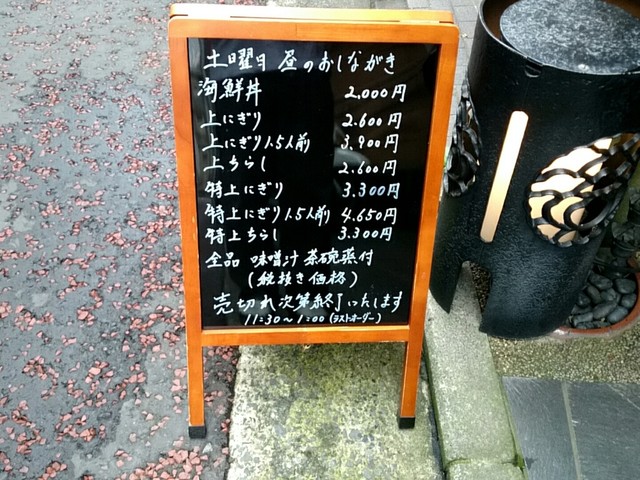 土曜日 昼のおしながき
海鮮丼 2,000円
上にぎり 2.600円
上にぎり1.5人前 3.900円
上ちらし 2.600円
特上にぎり 3.300円
特上にぎり1.5人前 4.650円
特上ちらし 3.300円
全品 味噌汁 茶碗蒸付
(税抜き価格)
売切れ次第終了いたします
11:30~1:00(ラストオーダー)